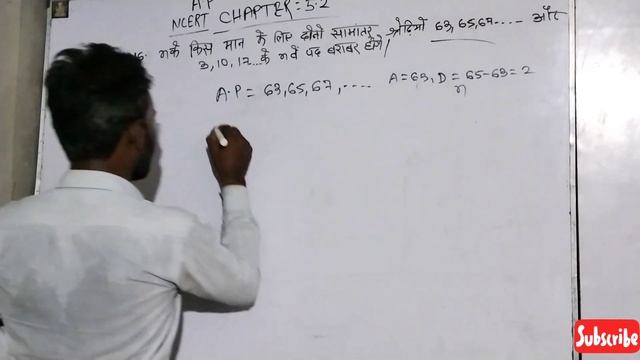 A P
NCERT CHAPTER = 5.2
16. n के किस मान के लिए दोनों सामांतर श्रेढ़ियों 63, 65, 67 .... और
3, 10, 17... के n वें पद बराबर होंगे/
A.P = 63, 65, 67, .... A = 63, D = 65-63 = 2
n
Subscribe